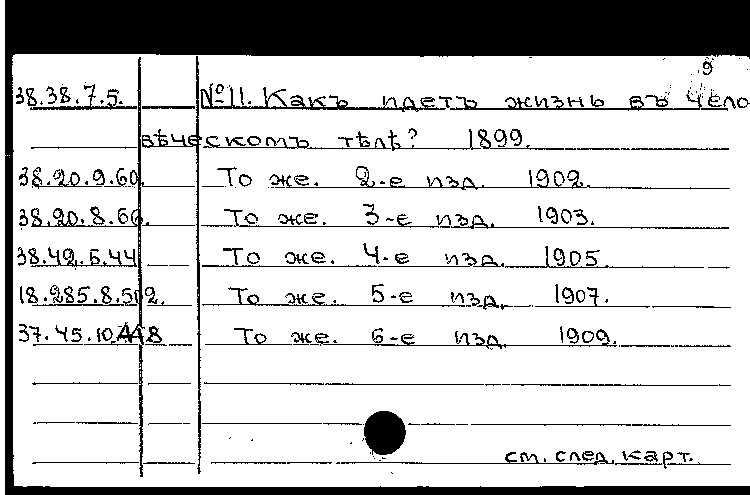 9
38.38.7.5. №11. Какъ идетъ жизнь въ чело
вѣческомъ тѣлѣ? 1899.
38.20.9.60. То же. 2-е изд. 1902.
38.20.8.66. То же. 3-е изд. 1903.
38.42.5.44 То же. 4-е изд. 1905.
18.285.8.502. То же. 5-е изд. 1907.
То же. 6-е изд. 1909.
см. след. карт.